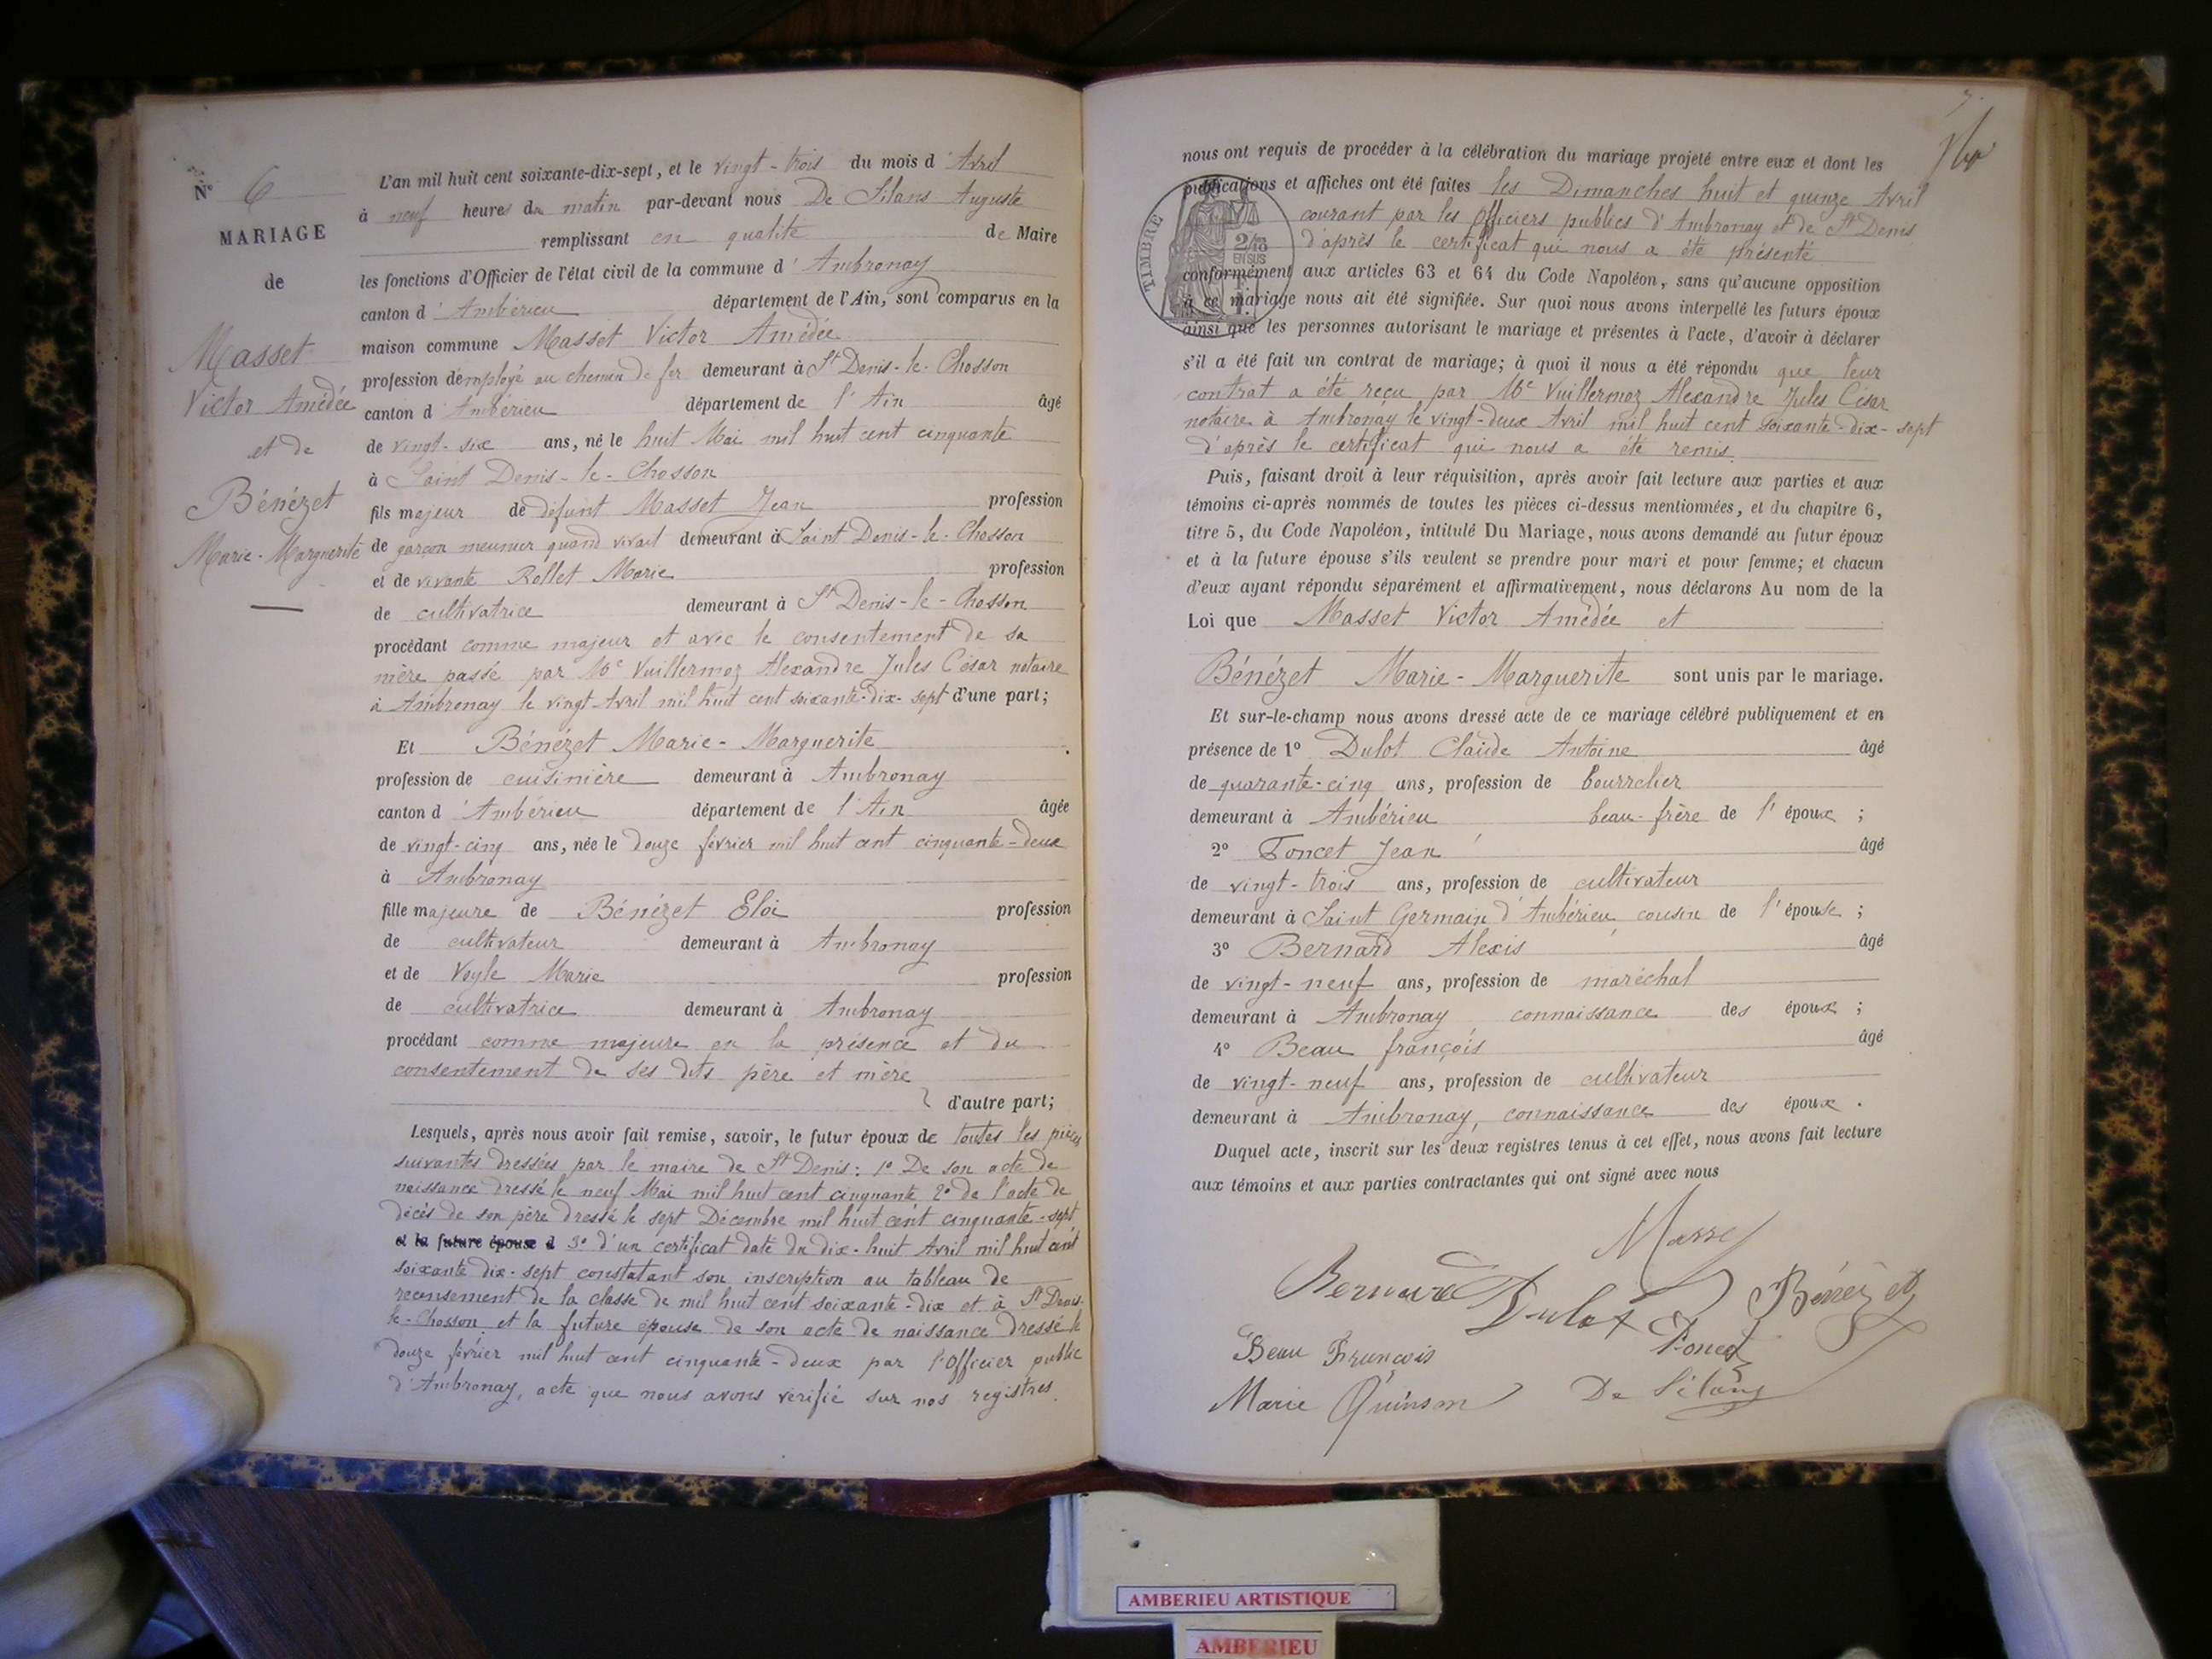 N° 6
MARIAGE
de
Masset
Victor Amédée
et de
Bénézet
Marie-Marguerite
L'an mil huit cent soixante-dix-sept, et le vingt-trois du mois d'Avril
à neuf heures du matin par-devant nous De Silans Auguste
remplissant en qualité de Maire
les fonctions d'Officier de l'état civil de la commune d'Ambronay
canton d'Ambérieu département de l'Ain, sont comparus en la
maison commune Masset Victor Amédée
profession d'employé au chemin de fer demeurant à St Denis-le-Chosson
canton d'Ambérieu département de l'Ain âgé
de vingt-six ans, né le huit Mai mil huit cent cinquante
à Saint Denis-le-Chosson
fils majeur de défunt Masset Jean profession
de garçon meunier quand vivait demeurant à Saint Denis-le-Chosson
et de vivante Rollet Marie profession
de cultivatrice demeurant à St Denis-le-Chosson
procédant comme majeur et avec le consentement de sa
mère passé par Me Vuillermoz Alexandre Jules César notaire
à Ambronay le vingt Avril mil huit cent soixante-dix-sept d'une part;
Et Bénézet Marie-Marguerite
profession de cuisinière demeurant à Ambronay
canton d'Ambérieu département de l'Ain âgée
de vingt-cinq ans, née le douze février mil huit cent cinquante-deux
à Ambronay
fille majeure de Bénézet Eloi profession
de cultivateur demeurant à Ambronay
et de Vayle Marie profession
de cultivatrice demeurant à Ambronay
procédant comme majeure en la présence et du
consentement de ses dits père et mère
d'autre part;
Lesquels, après nous avoir fait remise, savoir, le futur époux de toutes les pièces
suivantes dressées par le maire de St Denis: 1° De son acte de
naissance dressé le neuf Mai mil huit cent cinquante 2° de l'acte de
décès de son père dressé le sept Décembre mil huit cent cinquante-sept
et la future épouse d 3° d'un certificat daté du dix-huit Avril mil huit cent
soixante dix-sept constatant son inscription au tableau de
recensement de la classe de mil huit cent soixante-dix et à St Denis-
le-Chosson et la future épouse de son acte de naissance dressé le
douze février mil huit cent cinquante-deux par l'Officier public
d'Ambronay, acte que nous avons vérifié sur nos registres.
nous ont requis de procéder à la célébration du mariage projeté entre eux et dont les
publications et affiches ont été faites les Dimanches huit et quinze Avril
courant par les Officiers publics d'Ambronay et de St Denis
d'après le certificat qui nous a été présenté
TIMBRE
2/10
EN SUS
conformément aux articles 63 et 64 du Code Napoléon, sans qu'aucune opposition
à ce mariage nous ait été signifiée. Sur quoi nous avons interpellé les futurs époux
ainsi que les personnes autorisant le mariage et présentes à l'acte, d'avoir à déclarer
s'il a été fait un contrat de mariage; à quoi il nous a été répondu que leur
contrat a été reçu par Me Vuillermoz Alexandre Jules César
notaire à Ambronay le vingt-deux Avril mil huit cent soixante-dix-sept
d'après le certificat qui nous a été remis.
Puis, faisant droit à leur réquisition, après avoir fait lecture aux parties et aux
témoins ci-après nommés de toutes les pièces ci-dessus mentionnées, et du chapitre 6,
titre 5, du Code Napoléon, intitulé Du Mariage, nous avons demandé au futur époux
et à la future épouse s'ils veulent se prendre pour mari et pour femme; et chacun
d'eux ayant répondu séparément et affirmativement, nous déclarons Au nom de la
Loi que Masset Victor Amédée et
Bénézet Marie-Marguerite sont unis par le mariage.
Et sur-le-champ nous avons dressé acte de ce mariage célébré publiquement et en
présence de 1° Dulot Claude Antoine âgé
de quarante-cinq ans, profession de bourrelier
demeurant à Ambérieu beau-frère de l'époux ;
2° Poncet Jean âgé
de vingt-trois ans, profession de cultivateur
demeurant à Saint Germain d'Ambérieu, cousin de l'épouse ;
3° Bernard Alexis âgé
de vingt-neuf ans, profession de maréchal
demeurant à Ambronay connaissance des époux ;
4° Beau françois âgé
de vingt-neuf ans, profession de cultivateur
demeurant à Ambronay, connaissance des époux .
Duquel acte, inscrit sur les deux registres tenus à cet effet, nous avons fait lecture
aux témoins et aux parties contractantes qui ont signé avec nous
Masset
Bernard Dulot Bénézet
Beau François Poncet
Marie Quinson De Silans
AMBERIEU ARTISTIQUE
AMBERIEU